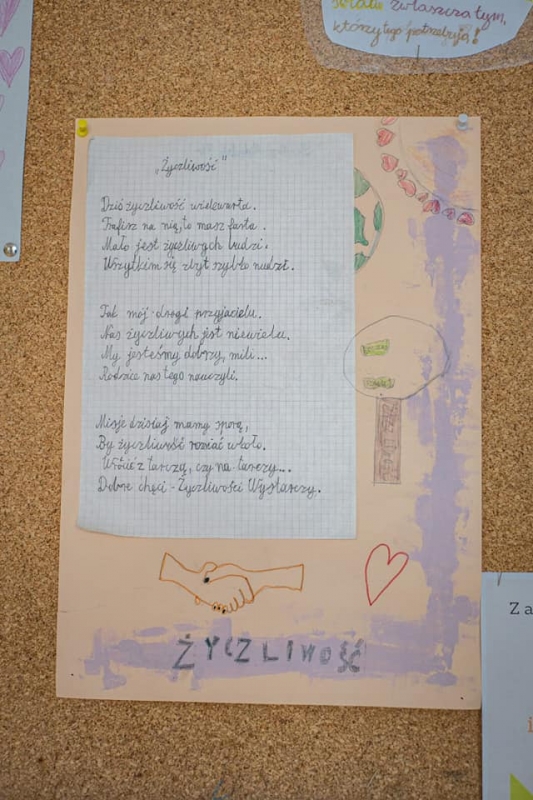 świata zwłaszcza tym,
którzy tego potrzebują!
„Życzliwość"
Dziś życzliwość wielowarta.
Trafisz na nią, to masz farta.
Mało jest życzliwych ludzi.
Wszystkim się zbyt szybko nudzi.
Tak mój drogi przyjacielu.
Nas życzliwych jest niewielu.
My jesteśmy dobrzy, mili...
Rodzice nas tego nauczyli.
Misję dzisiaj mamy sporą,
By życzliwość rozsiać wkoło.
Wrócić z tarczą, czy na tarczy...
Dobre chęci - Życzliwości Wystarczy.
ŻYCZLIWOŚĆ
Za